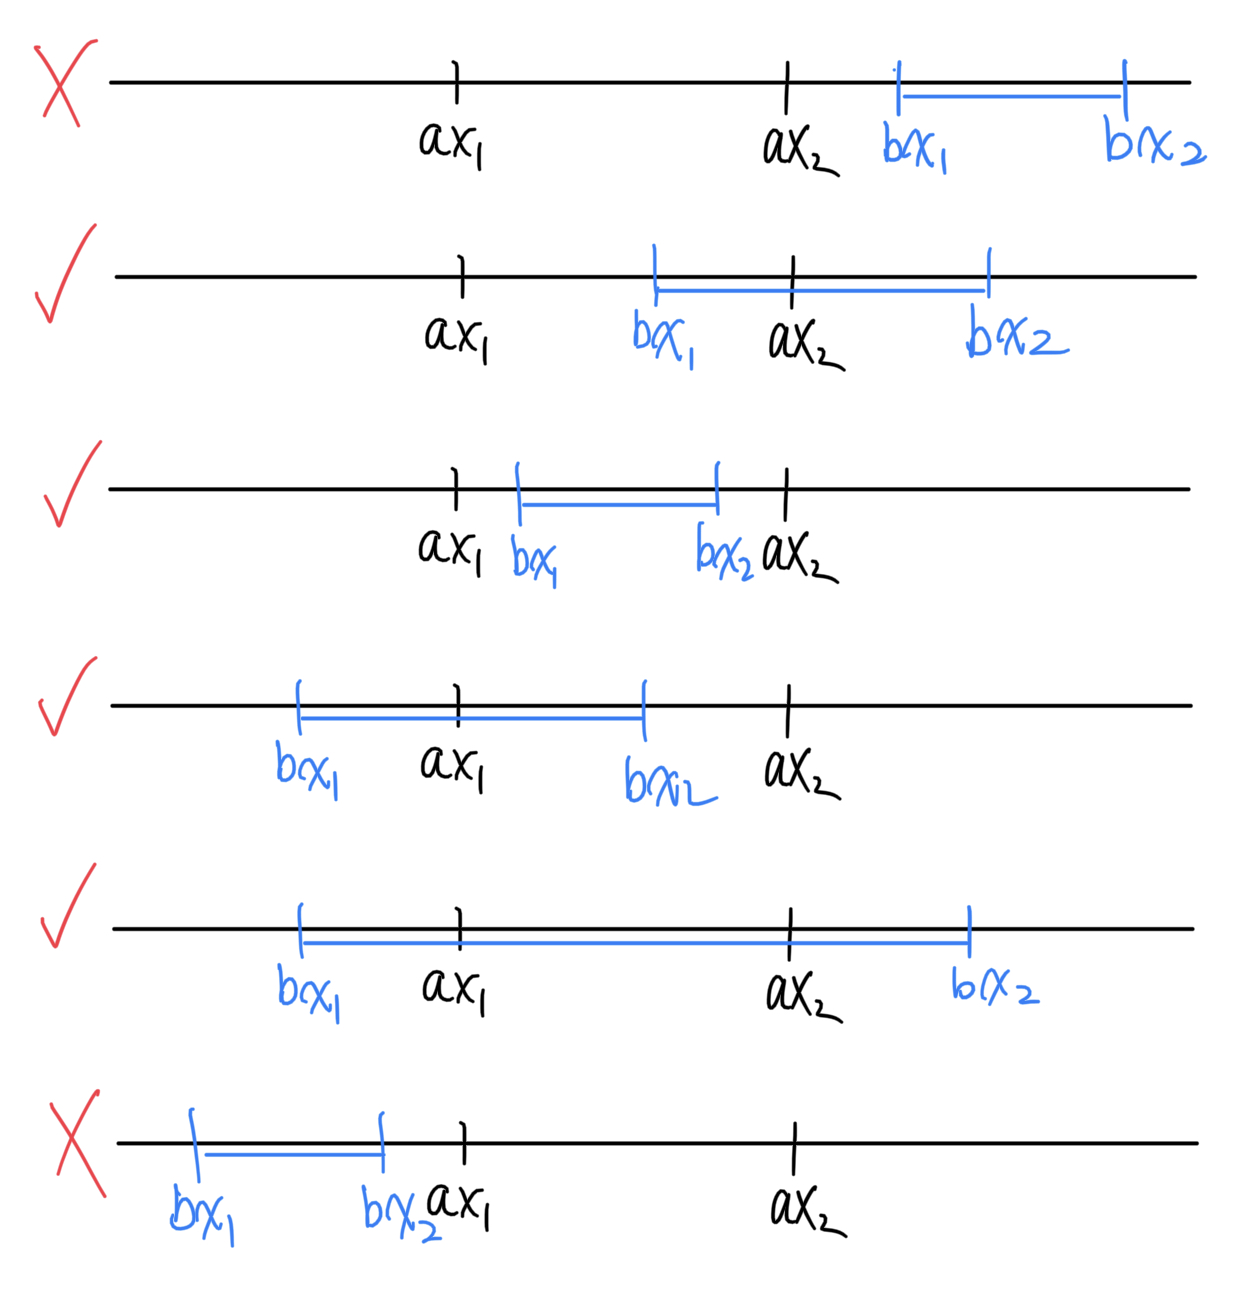 ax₁ ax₂ bx₁ bx₂
ax₁ bx₁ ax₂ bx₂
ax₁ bx₁ bx₂ ax₂
bx₁ ax₁ bx₂ ax₂
bx₁ ax₁ ax₂ bx₂
bx₁ bx₂ ax₁ ax₂